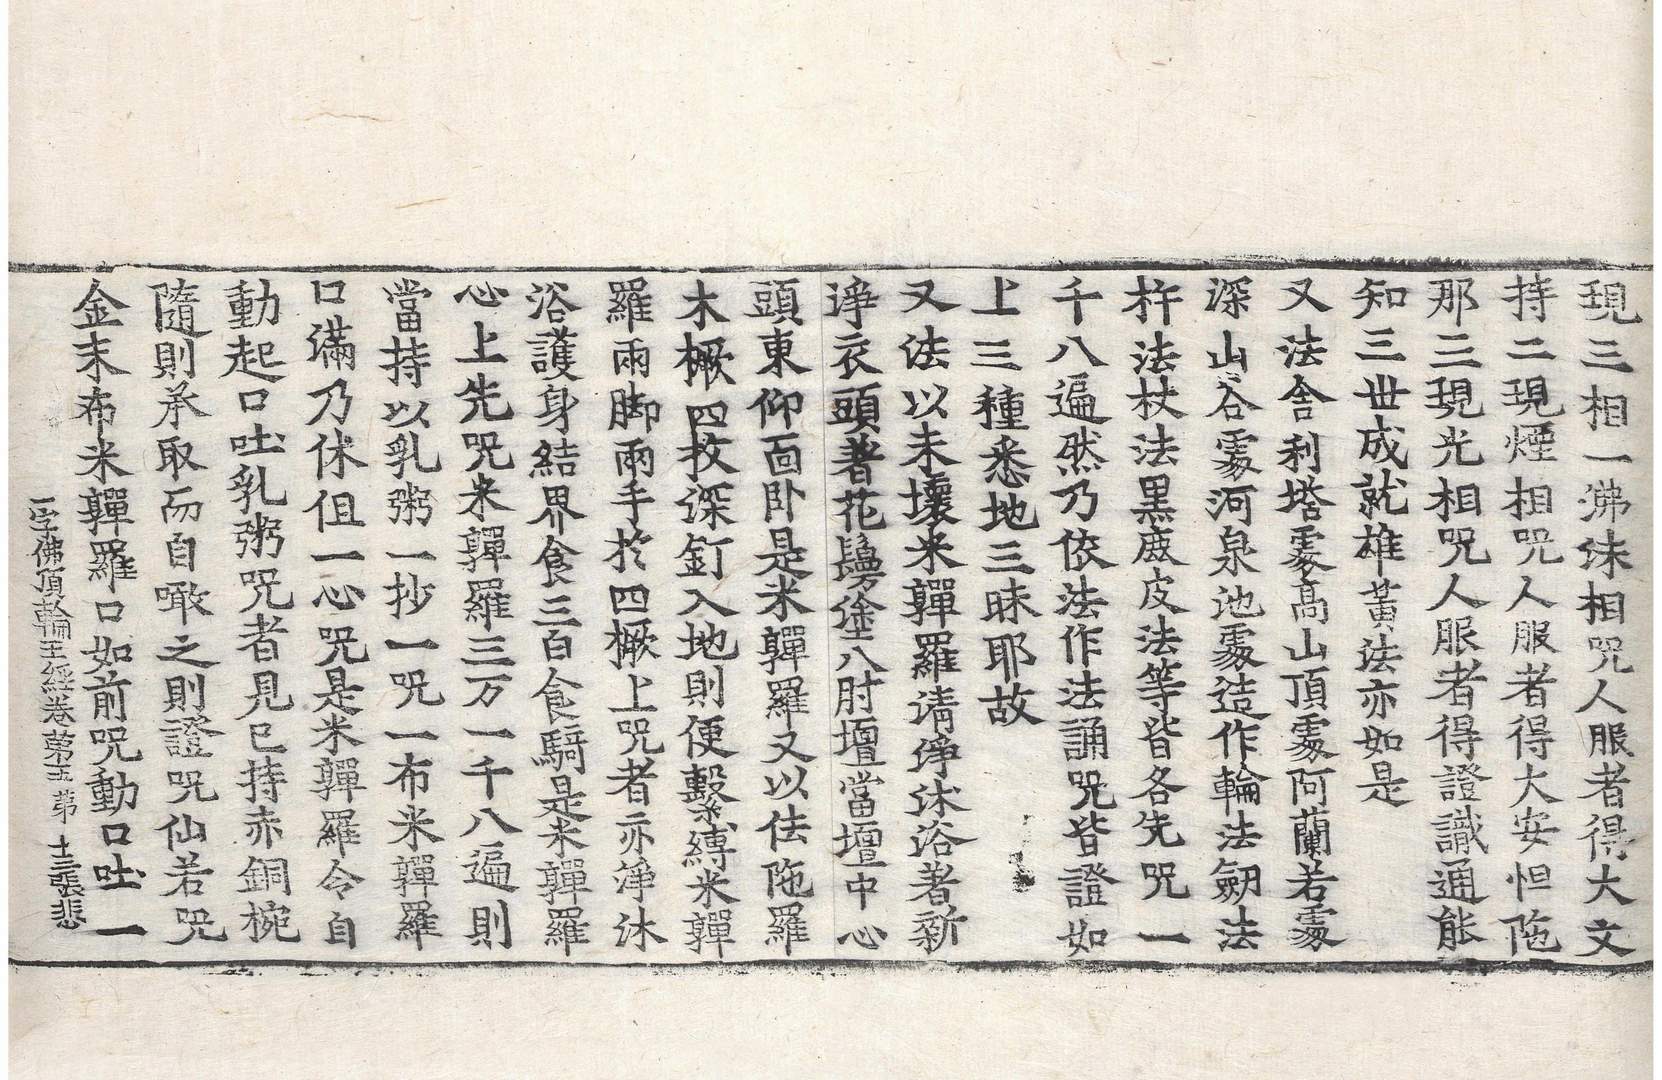 現三相一沸沫相咒人服者得大文
持二現煙相咒人服者得大安怛陁
那三現光相咒人服者得證識通能
知三世成就雄黃法亦如是
又法舍利塔處高山頂處阿蘭若處
深山谷處河泉池處造作輪法劒法
杵法杖法黑鹿皮法等皆各先咒一
千八遍然乃依法作法誦咒皆證如
上三種悉地三昧耶故
又法以未壞米嚲羅請淨沐浴著新
淨衣頭著花鬘塗八肘壇當壇中心
頭東仰面卧是米嚲羅又以佉陁羅
木橛四枚深釘入地則便繫縛米嚲
羅兩脚兩手於四橛上咒者亦淨沐
浴護身結界食三白食騎是米嚲羅
心上先咒米嚲羅三万一千八遍則
當持以乳粥一抄一咒一布米嚲羅
口滿乃休但一心咒是米嚲羅令自
動起口吐乳粥咒者見已持赤銅椀
隨則承取而自噉之則證咒仙若咒
金末布米嚲羅口如前咒動口吐一
一字佛頂輪王經卷第五 第十三張 悲